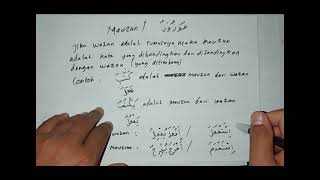 Mauzan / مَوْزُوْنٌ
Jika wazan adalah rumusnya maka mauzun
adalah kata yang dibandingkan dan disandingkan
dengan wazan (yang ditimbang)
Contoh : كَتَبَ adalah mauzun dari wazan
فَعَلَ
adalah mauzun dari wazan
يَفْعُلُ
wazan : / اِسْتَفْعَلَ
mauzun : / اِسْتَخْدَمَ